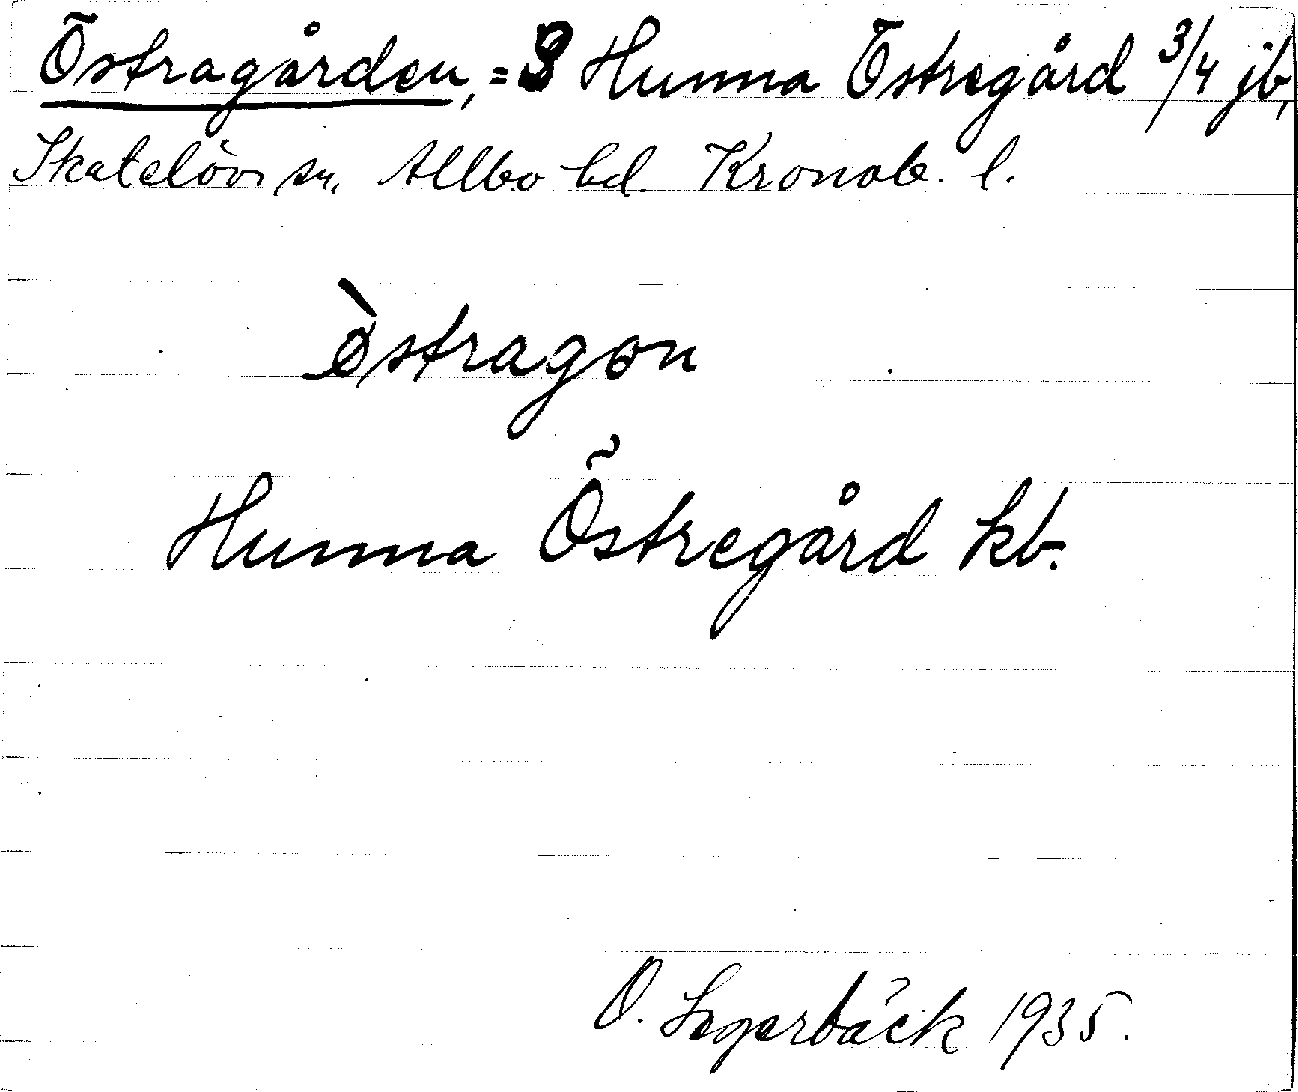 Östragården, = 3 Hunna Östregård 3/4 jb,
Skatelövs sn. Allbo hd. Kronob. l.
òstragon
Hunna Östregård kb.
O. Segerbäck 1935.